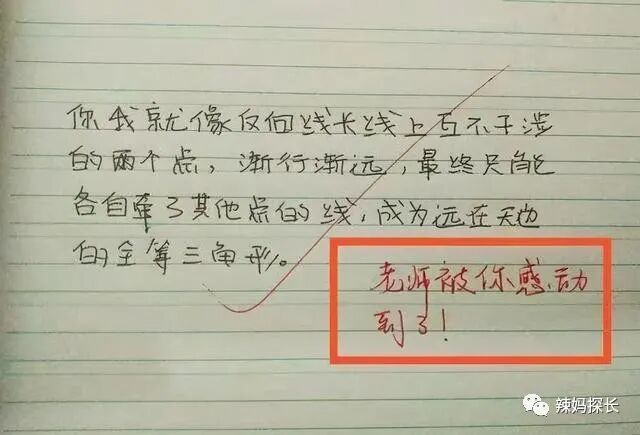 你我就像反向线长线上互不干涉
的两个点，渐行渐远，最终只能
各自牵了其他点的线，成为远在天边
的全等三角形。
老师被你感动
到了！
辣妈探长